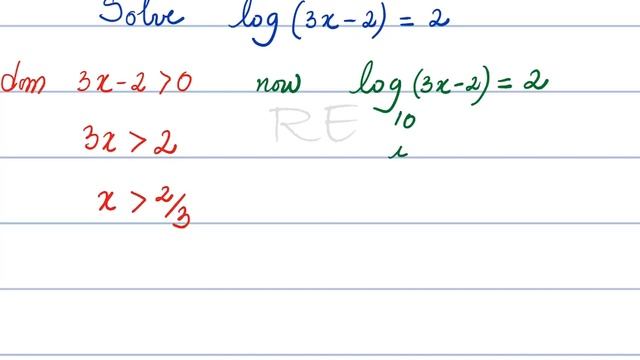 Solve log(3x-2) = 2
dom 3x-2>0 now log(3x-2) = 2
10
RE
3x > 2
x > 2/3